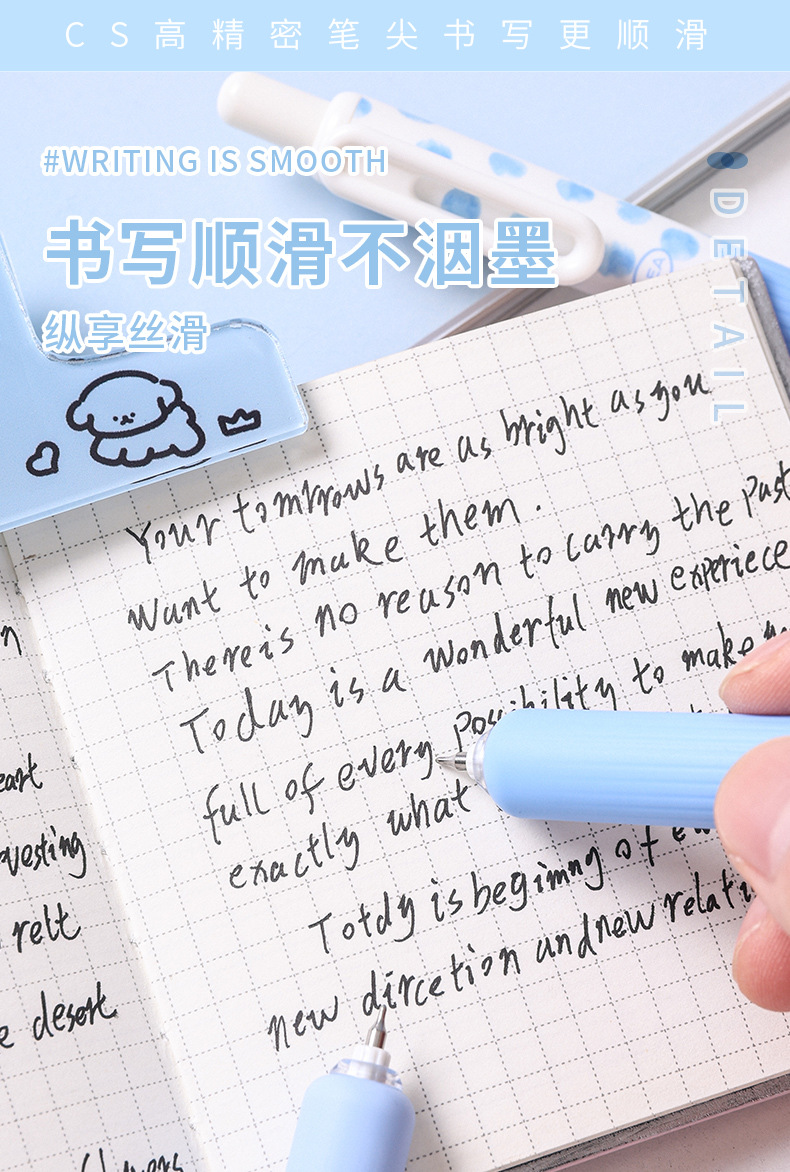 CS高精密笔尖书写更顺滑
#WRITING IS SMOOTH
书写顺滑不洇墨
纵享丝滑
DETAIL
Your tomrrows are as bright as you
want to make them.
Thereis no reason to carry the past
Today is a wonderful new experiece
full of every possibility to make
exactly what
Totdy is begimng of
new dircetion and new relati
eart
vesting
relt
desert